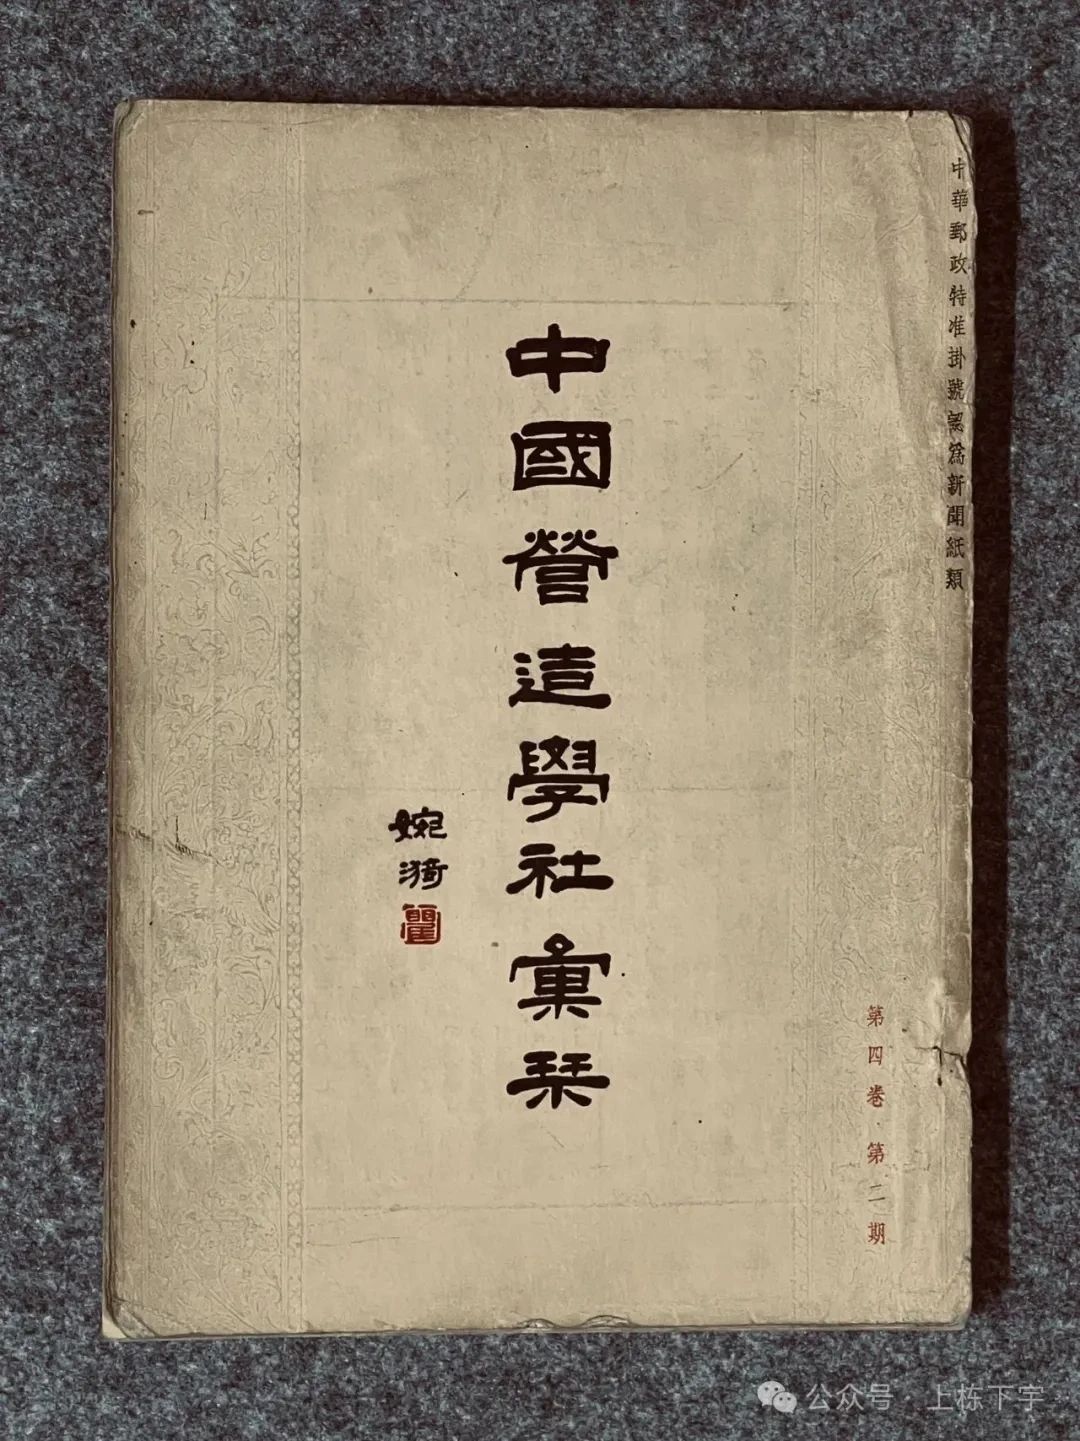 中華郵政特准掛號認爲新聞紙類
中國營造學社彙栞
婉漪
瞿
第四卷·第二期
公众号·上栋下宇